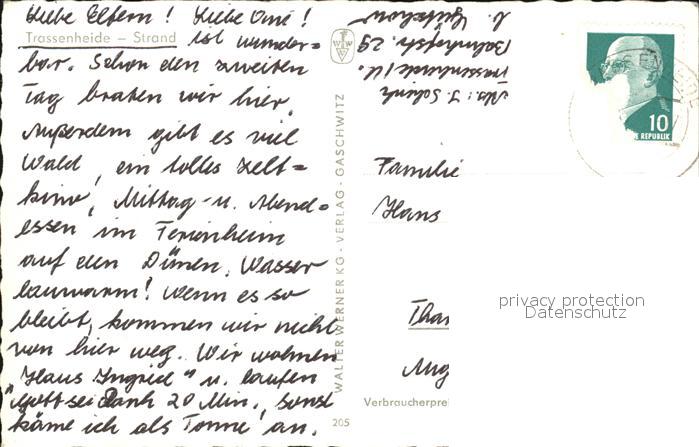 Liebe Eltern! Liebe Omi!
Trassenheide – Strand ist wunder=
bar. Schon den zweiten
Tag braten wir hier.
Außerdem gibt es viel
Wald, ein tolles Zelt=
kino, Mittag- u. Abend=
essen im Ferienheim
auf den Dünen. Wasser
lauwarm! Wenn es so
bleibt, kommen wir nicht
von hier weg. Wir wohnen
"Haus Ingrid" u. laufen
Gott sei Dank 20 Min., sonst
käme ich als Tonne an.
WALTER WERNER KG - VERLAG - GASCHWITZ
205
Abs.: J.
Trassenheide/U.
Bahnhofstr. 29
b.
10
REPUBLIK
Familie
Hans
Thar
Aug
Verbraucherprei
privacy protection
Datenschutz